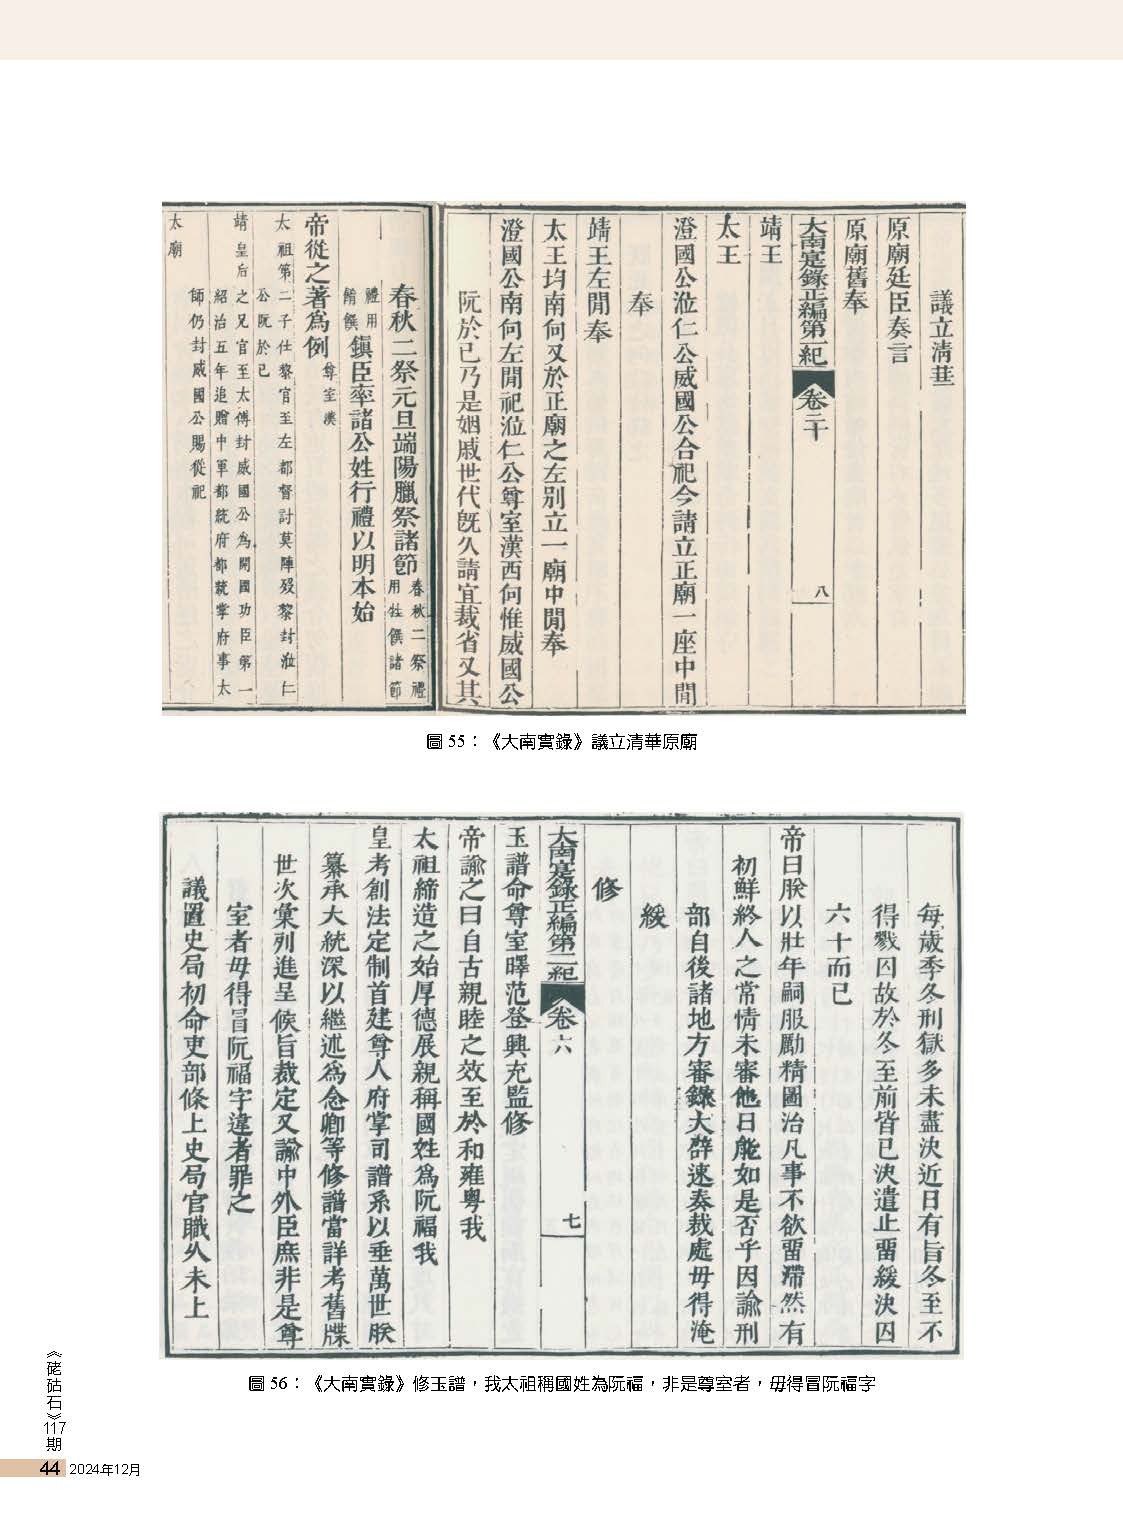 議立清華
原廟廷臣奏言
原廟舊奉
大南寔錄正編第一紀 卷二十 八
靖王
太王
澄國公涖仁公威國公合祀今請立正廟一座中間
奉
靖王左間奉
太王均南向又於正廟之左別立一廟中間奉
澄國公南向左間祀涖仁公尊室漢西向惟威國公
阮於已乃是姻戚世代旣久請宜裁省又其
春秋二祭元旦端陽臘祭諸節
春秋二祭禮
用牲饌諸節
禮用
餚饌
鎭臣率諸公姓行禮以明本始
帝從之著爲例
尊室漢
太祖第二子仕黎官至左都督討莫陣歿黎封涖仁
公阮於已
靖皇后之兄官至太傅封威國公為開國功臣第一
紹治五年追贈中軍都統府都統掌府事太
師仍封威國公賜從祀
太廟
圖 55：《大南實錄》議立清華原廟
每歲季冬刑獄多未盡決近日有旨冬至不
得戮囚故於冬至前皆已決遣止畱緩決囚
六十而已
帝曰朕以壯年嗣服勵精圖治凡事不欲畱滯然有
初鮮終人之常情未審他日能如是否乎因諭刑
部自後諸地方審錄大辟速奏裁處毋得淹
緩
修
大南寔錄正編第二紀 卷六 七
玉譜命尊室曎范登興充監修
帝諭之曰自古親睦之效至於和雍粤我
太祖締造之始厚德展親稱國姓爲阮福我
皇考創法定制首建尊人府掌司譜系以垂萬世朕
纂承大統深以繼述爲念卿等修譜當詳考舊牒
世次彙列進呈候旨裁定又諭中外臣庶非是尊
室者毋得冒阮福字違者罪之
議置史局初命吏部條上史局官職久未上
圖 56：《大南實錄》修玉譜，我太祖稱國姓為阮福，非是尊室者，毋得冒阮福字
《硓𥑮石》117期
44 2024年12月